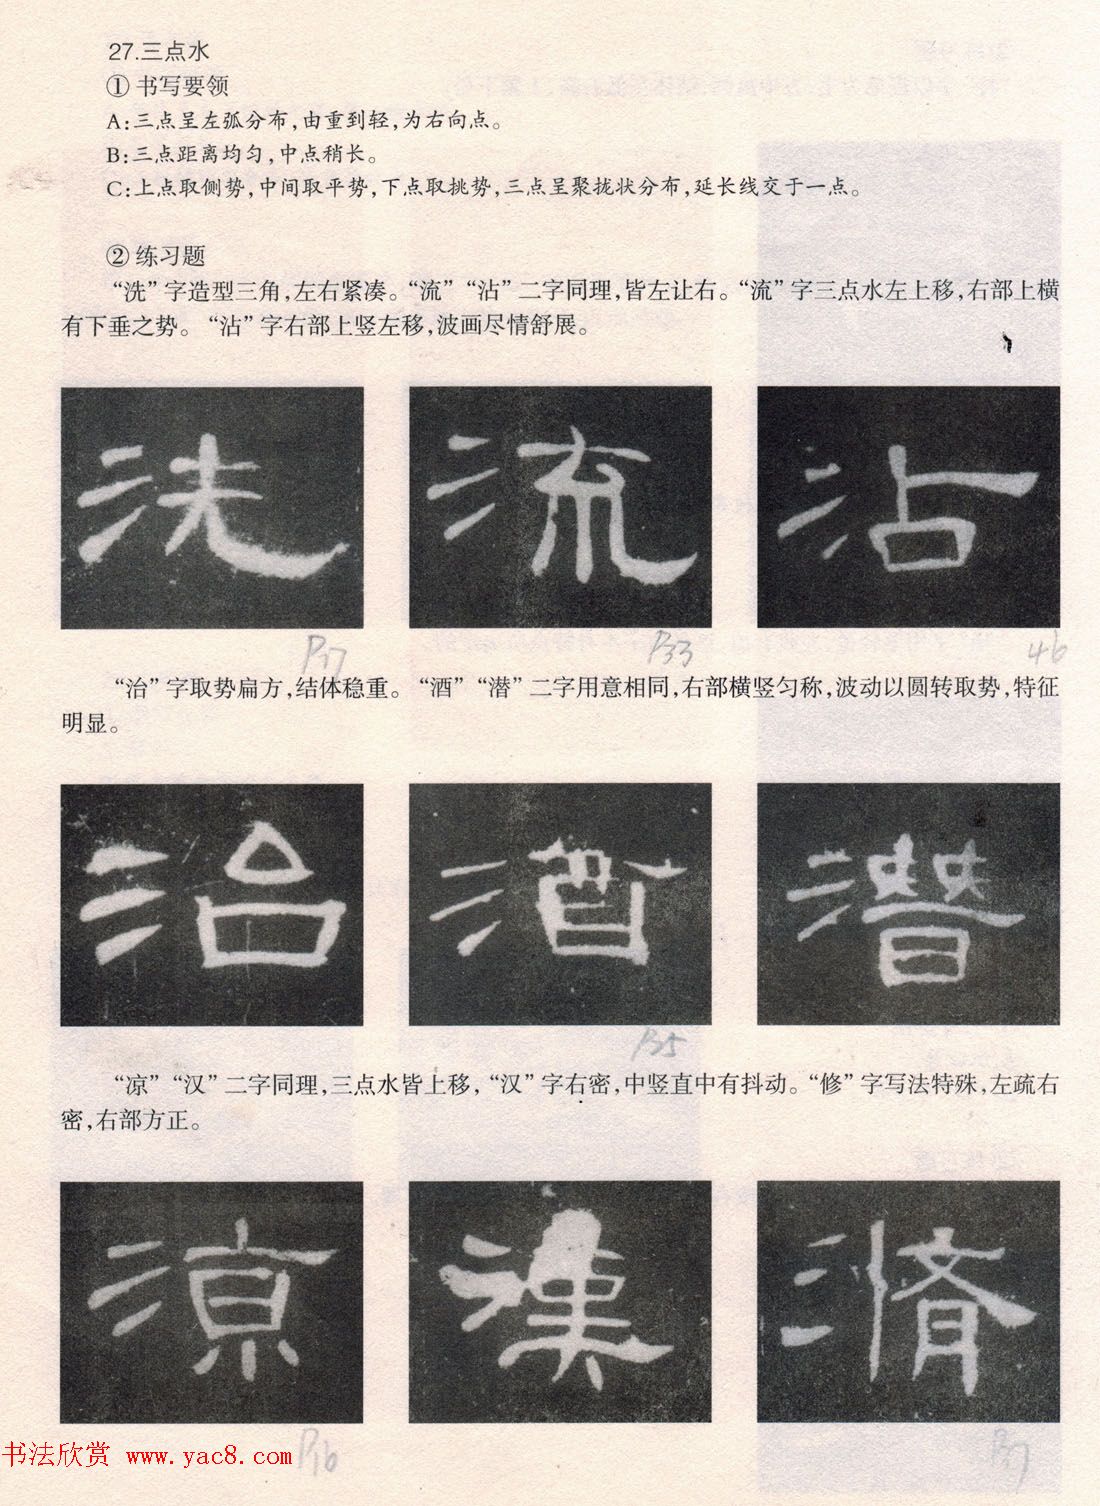 27.三点水
① 书写要领
A:三点呈左弧分布,由重到轻,为右向点。
B:三点距离均匀,中点稍长。
C:上点取侧势,中间取平势,下点取挑势,三点呈聚拢状分布,延长线交于一点。
② 练习题
“洗”字造型三角,左右紧凑。“流”“沾”二字同理,皆左让右。“流”字三点水左上移,右部上横
有下垂之势。“沾”字右部上竖左移,波画尽情舒展。
洗 流 沾
P17 P33 46
“治”字取势扁方,结体稳重。“酒”“潜”二字用意相同,右部横竖匀称,波动以圆转取势,特征
明显。
治 酒 潜
P35
“凉”“汉”二字同理,三点水皆上移,“汉”字右密,中竖直中有抖动。“修”字写法特殊,左疏右
密,右部方正。
凉 漢 脩
书法欣赏 www.yac8.com P16